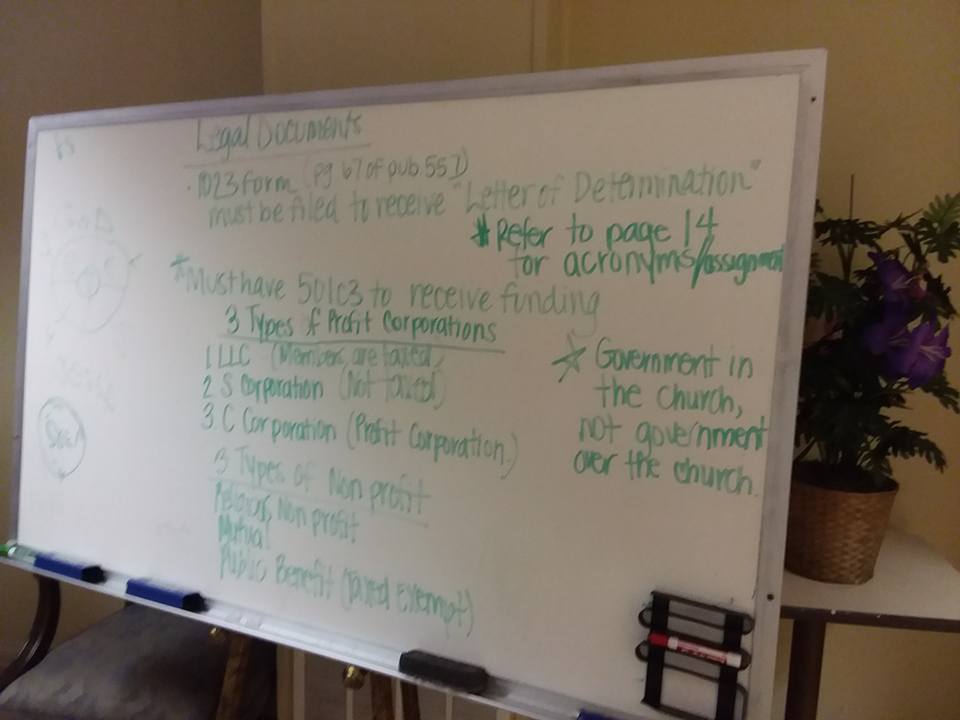 Legal Documents
· 1023 form (pg 67 of pub. 557)
must be filed to receive "Letter of Determination"
* Refer to page 14
for acronyms/assignment
* Must have 501c3 to receive funding
3 Types of Profit Corporations
1. LLC (Members are taxed)
2 S Corporation (Not Taxed)
3. C Corporation (Profit Corporation)
☆ Government in
the church,
not government
over the church.
3 Types of Non profit
Religious Non profit
Mutual
Public Benefit (Taxed Exempt)